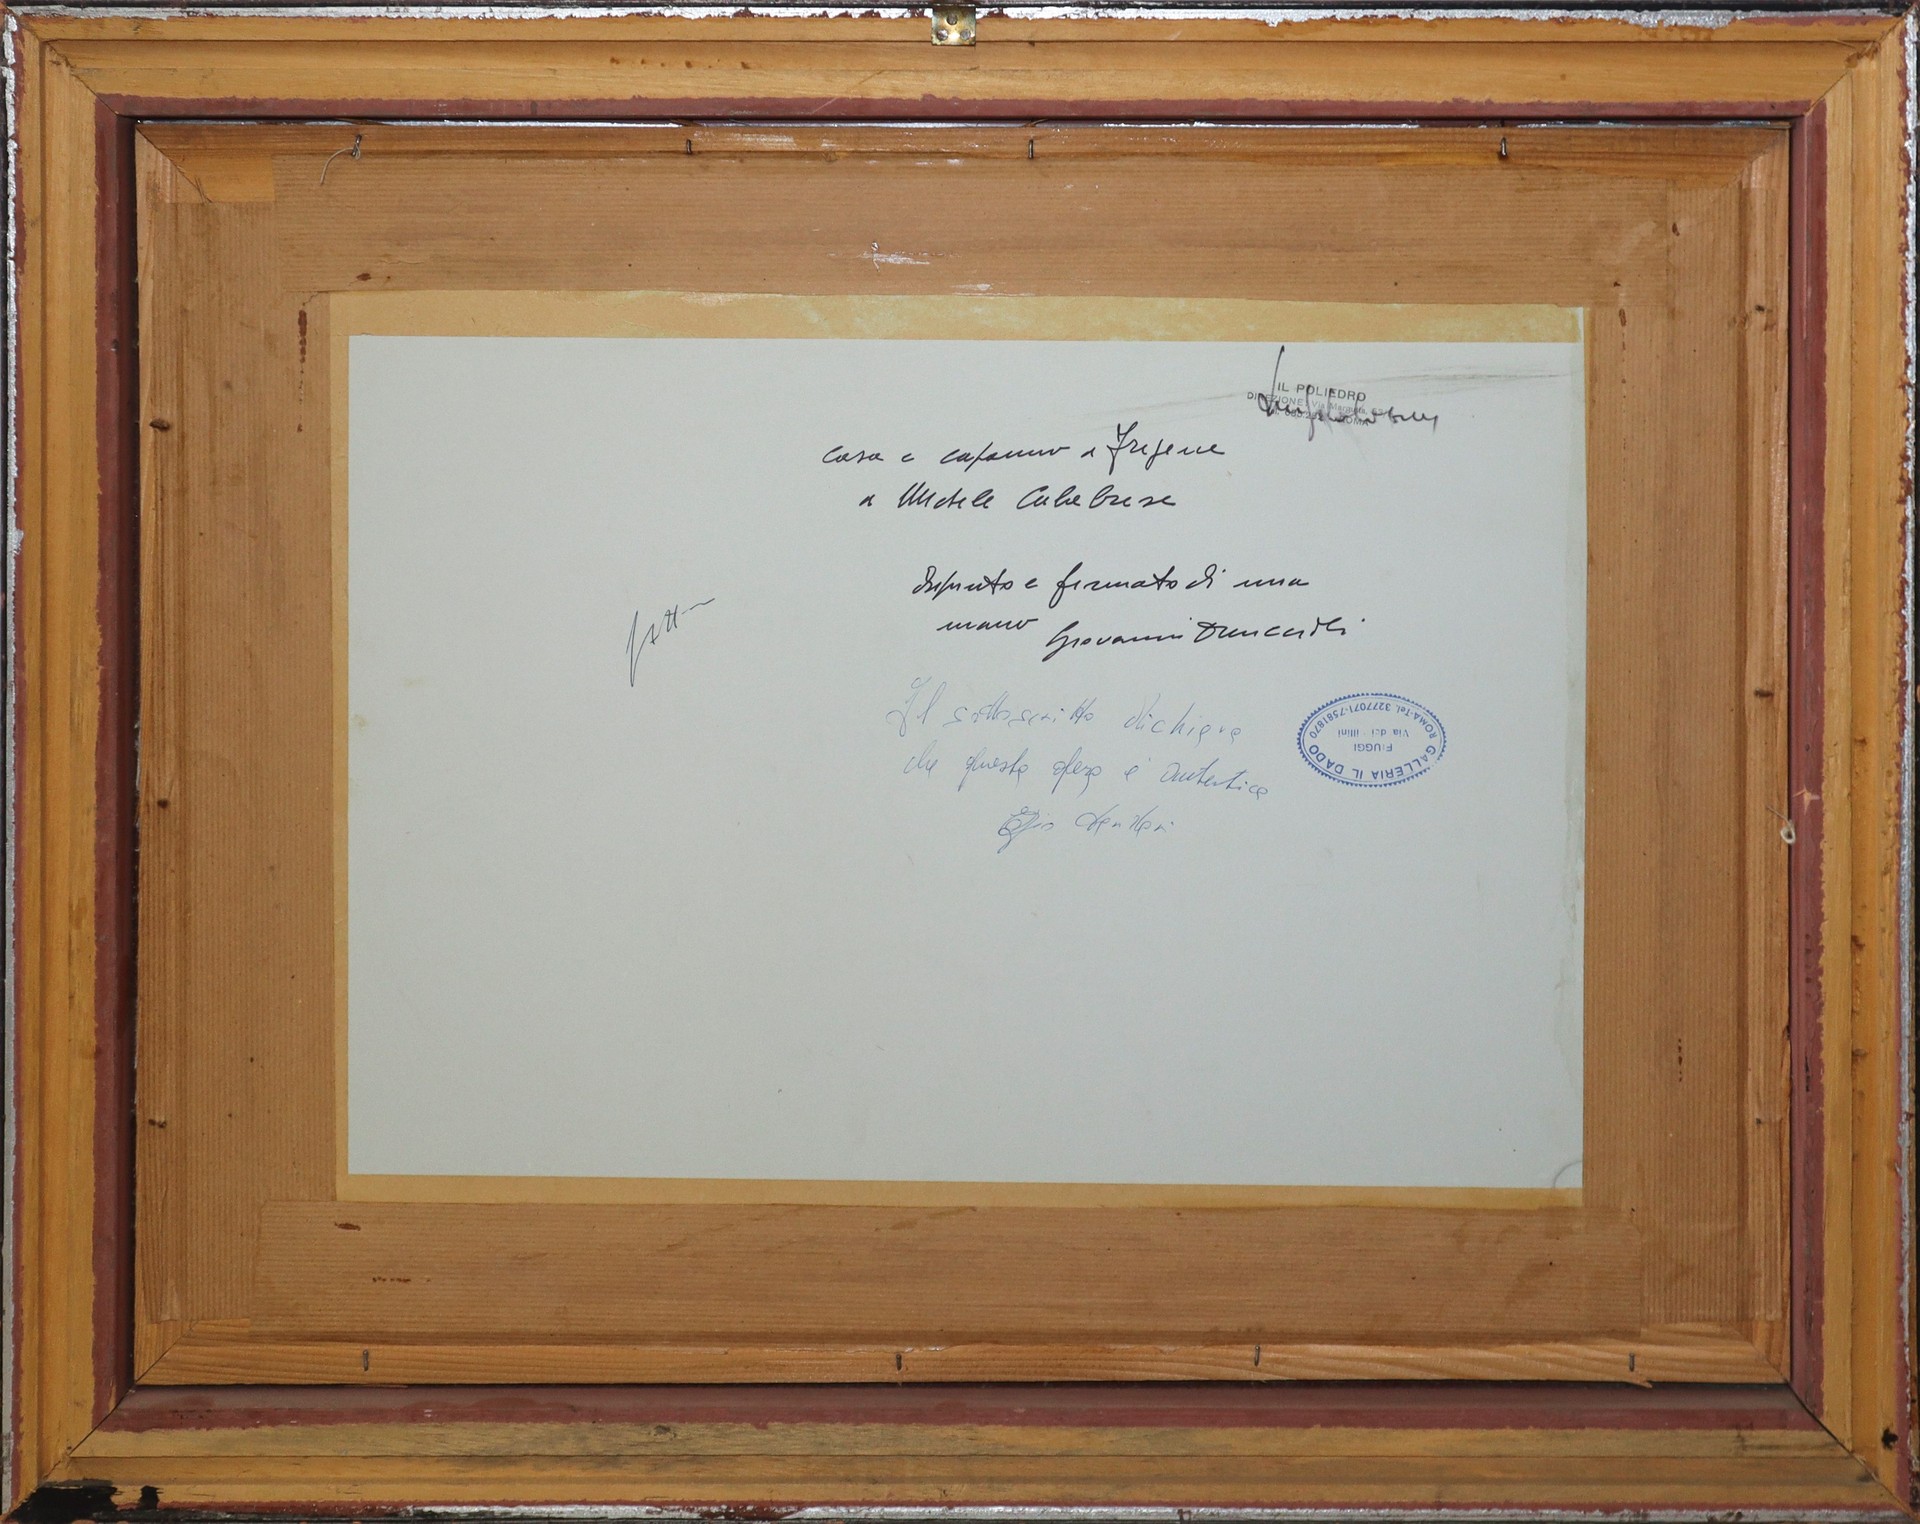 IL POLIEDRO
DIREZIONE: Via
ROMA
casa e capanno a Fregene
a Michele Calabrese
Dipinto e firmato di mia
mano Giovanni
Il sottoscritto dichiara
che questa opera è autentica
GALLERIA IL DADO
FIUGGI
Via dei
ROMA-Tel. 3277071-7581870